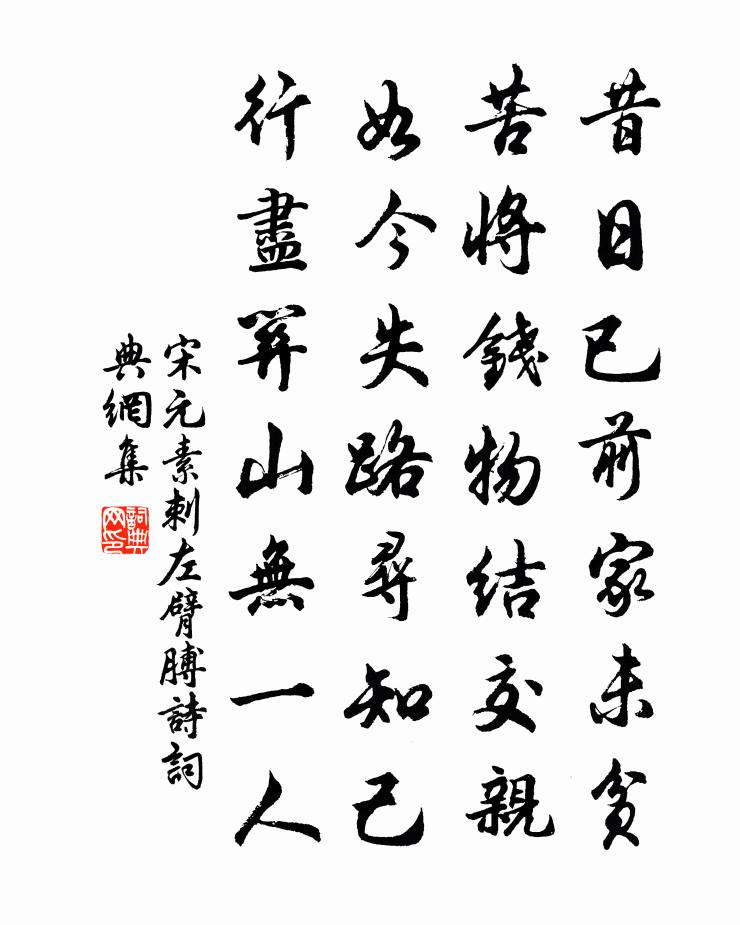 昔日已前家未貧
苦將錢物結交親
如今失路尋知己
行盡關山無一人
宋元素刺左臂膊詩詞
典網集
詞典
网印